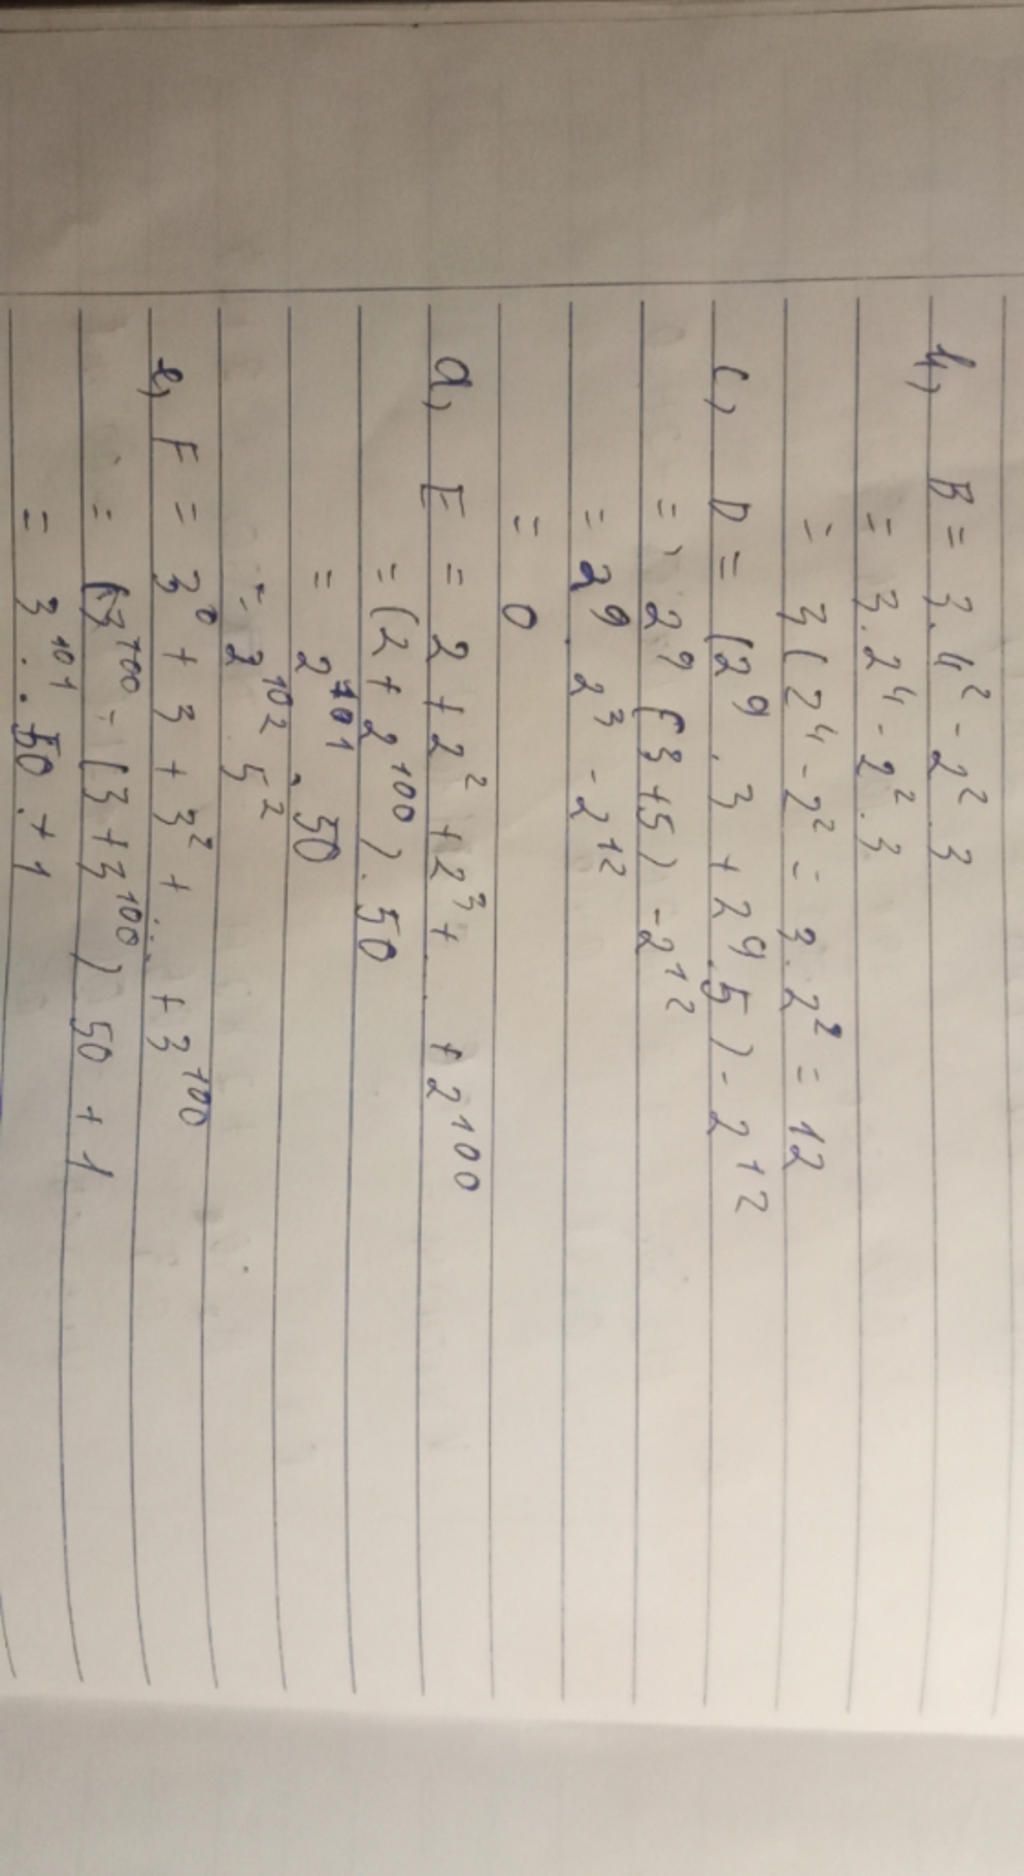 b, B = 3.4² - 2².3
= 3.2⁴ - 2².3
= 3(2⁴ - 2² = 3.2² = 12
c, D = (2⁹.3 + 2⁹.5) - 2¹²
= 2⁹(3+5) - 2¹²
= 2⁹.2³ - 2¹²
= 0
d, E = 2 + 2² + 2³ + ... + 2¹⁰⁰
= (2 + 2¹⁰⁰).50
= 2¹⁰¹.50
= 2¹⁰² 5²
e, F = 3⁰ + 3 + 3² + ... + 3¹⁰⁰
= (3¹⁰⁰ - (3 + 3¹⁰⁰) 50 + 1
= 3¹⁰¹.50 + 1